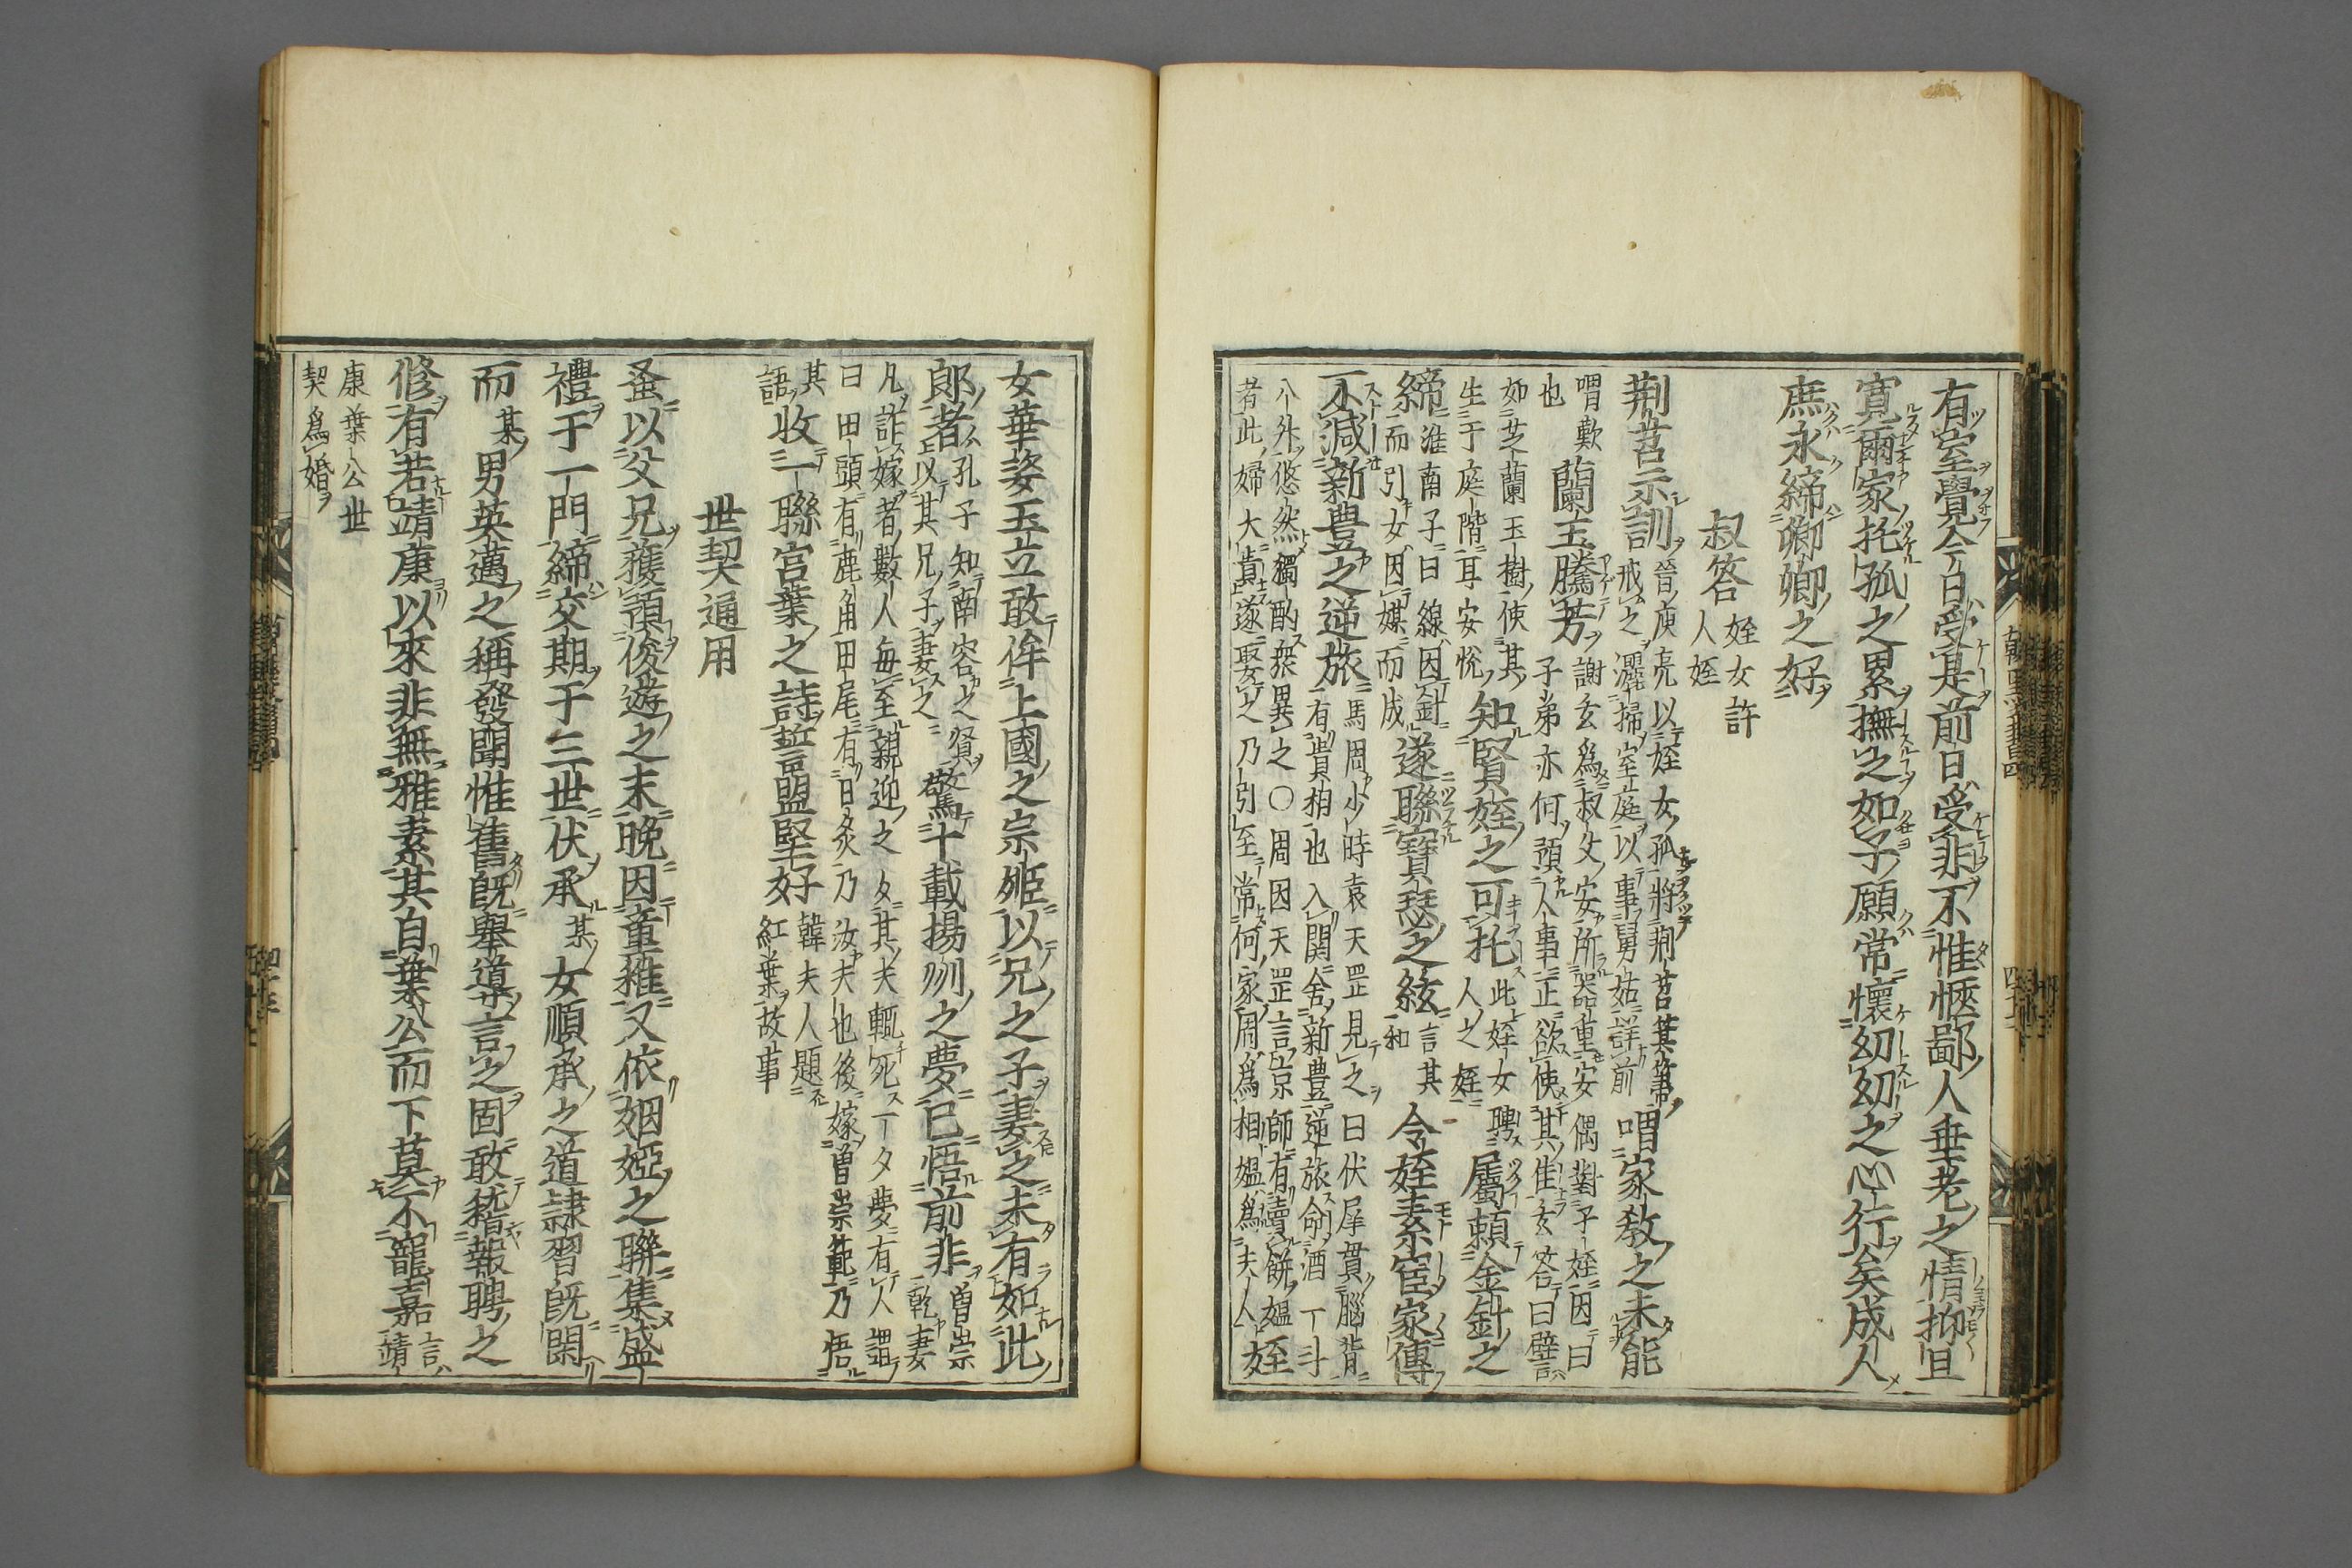 有室覺今日受寔前日受非不惟愜鄙人垂老之情抑且
寬爾家托孤之累撫之如子願常懷幻幻之心行矣成人
庶永締卿卿之好
叔答
姪女許
人姪
荆苕示訓
晉庾亮以姪女孤將荆苕其箒
戒之灑掃室庭以事舅姑詳前
喟家敎之未能
喟歎
也
蘭玉騰芳
謝玄爲叔父安所器重安偶對子姪因曰
子弟亦何預人事正欲使其佳玄答曰譬
如芝蘭玉樹使其
生于庭階耳安悅
知賢姪之可托
此姪女聘
人之姪
屬頼金針之
締
淮南子曰線因針
而引女因媒而成
遂聯寶瑟之絃
言其
和
令姪素宦家傳
不減新豊之逆旅
馬周少時袁天罡見之曰伏犀貫腦背
有貴相也入關舍新豊逆旅命酒一斗
八外悠然獨酌衆異之〇周因天罡言京師有賣餅媼
者此婦大貴遂娶之乃引至常何家周爲相媼爲夫人
姪
女華姿玉立敢侔上國之宗姬以兄之子妻之未有如此
郎者
孔子知南容之賢
以其兄子妻之
驚十載揚州之夢已悟前非
曾崇
乾妻
凡許嫁者數人每至親迎之夕其夫輒死一夕夢有人謂
曰田頭有鹿角田尾有日炙乃汝夫也後嫁曾崇範乃悟
其
語
收一聯宮葉之詩誓盟堅好
韓夫人題
紅葉故事
世契通用
蚤以父兄獲預俊遊之末晩因童稚又依姻婭之聯集盛
禮于一門締交期于三世伏承某女順承之道隷習旣閑
而某男英邁之稱發聞惟舊旣舉導言之固敢褚報聘之
修有若靖康以來非無雅素其自葉公而下莫不寵嘉
言
靖
康葉公世
契爲婚